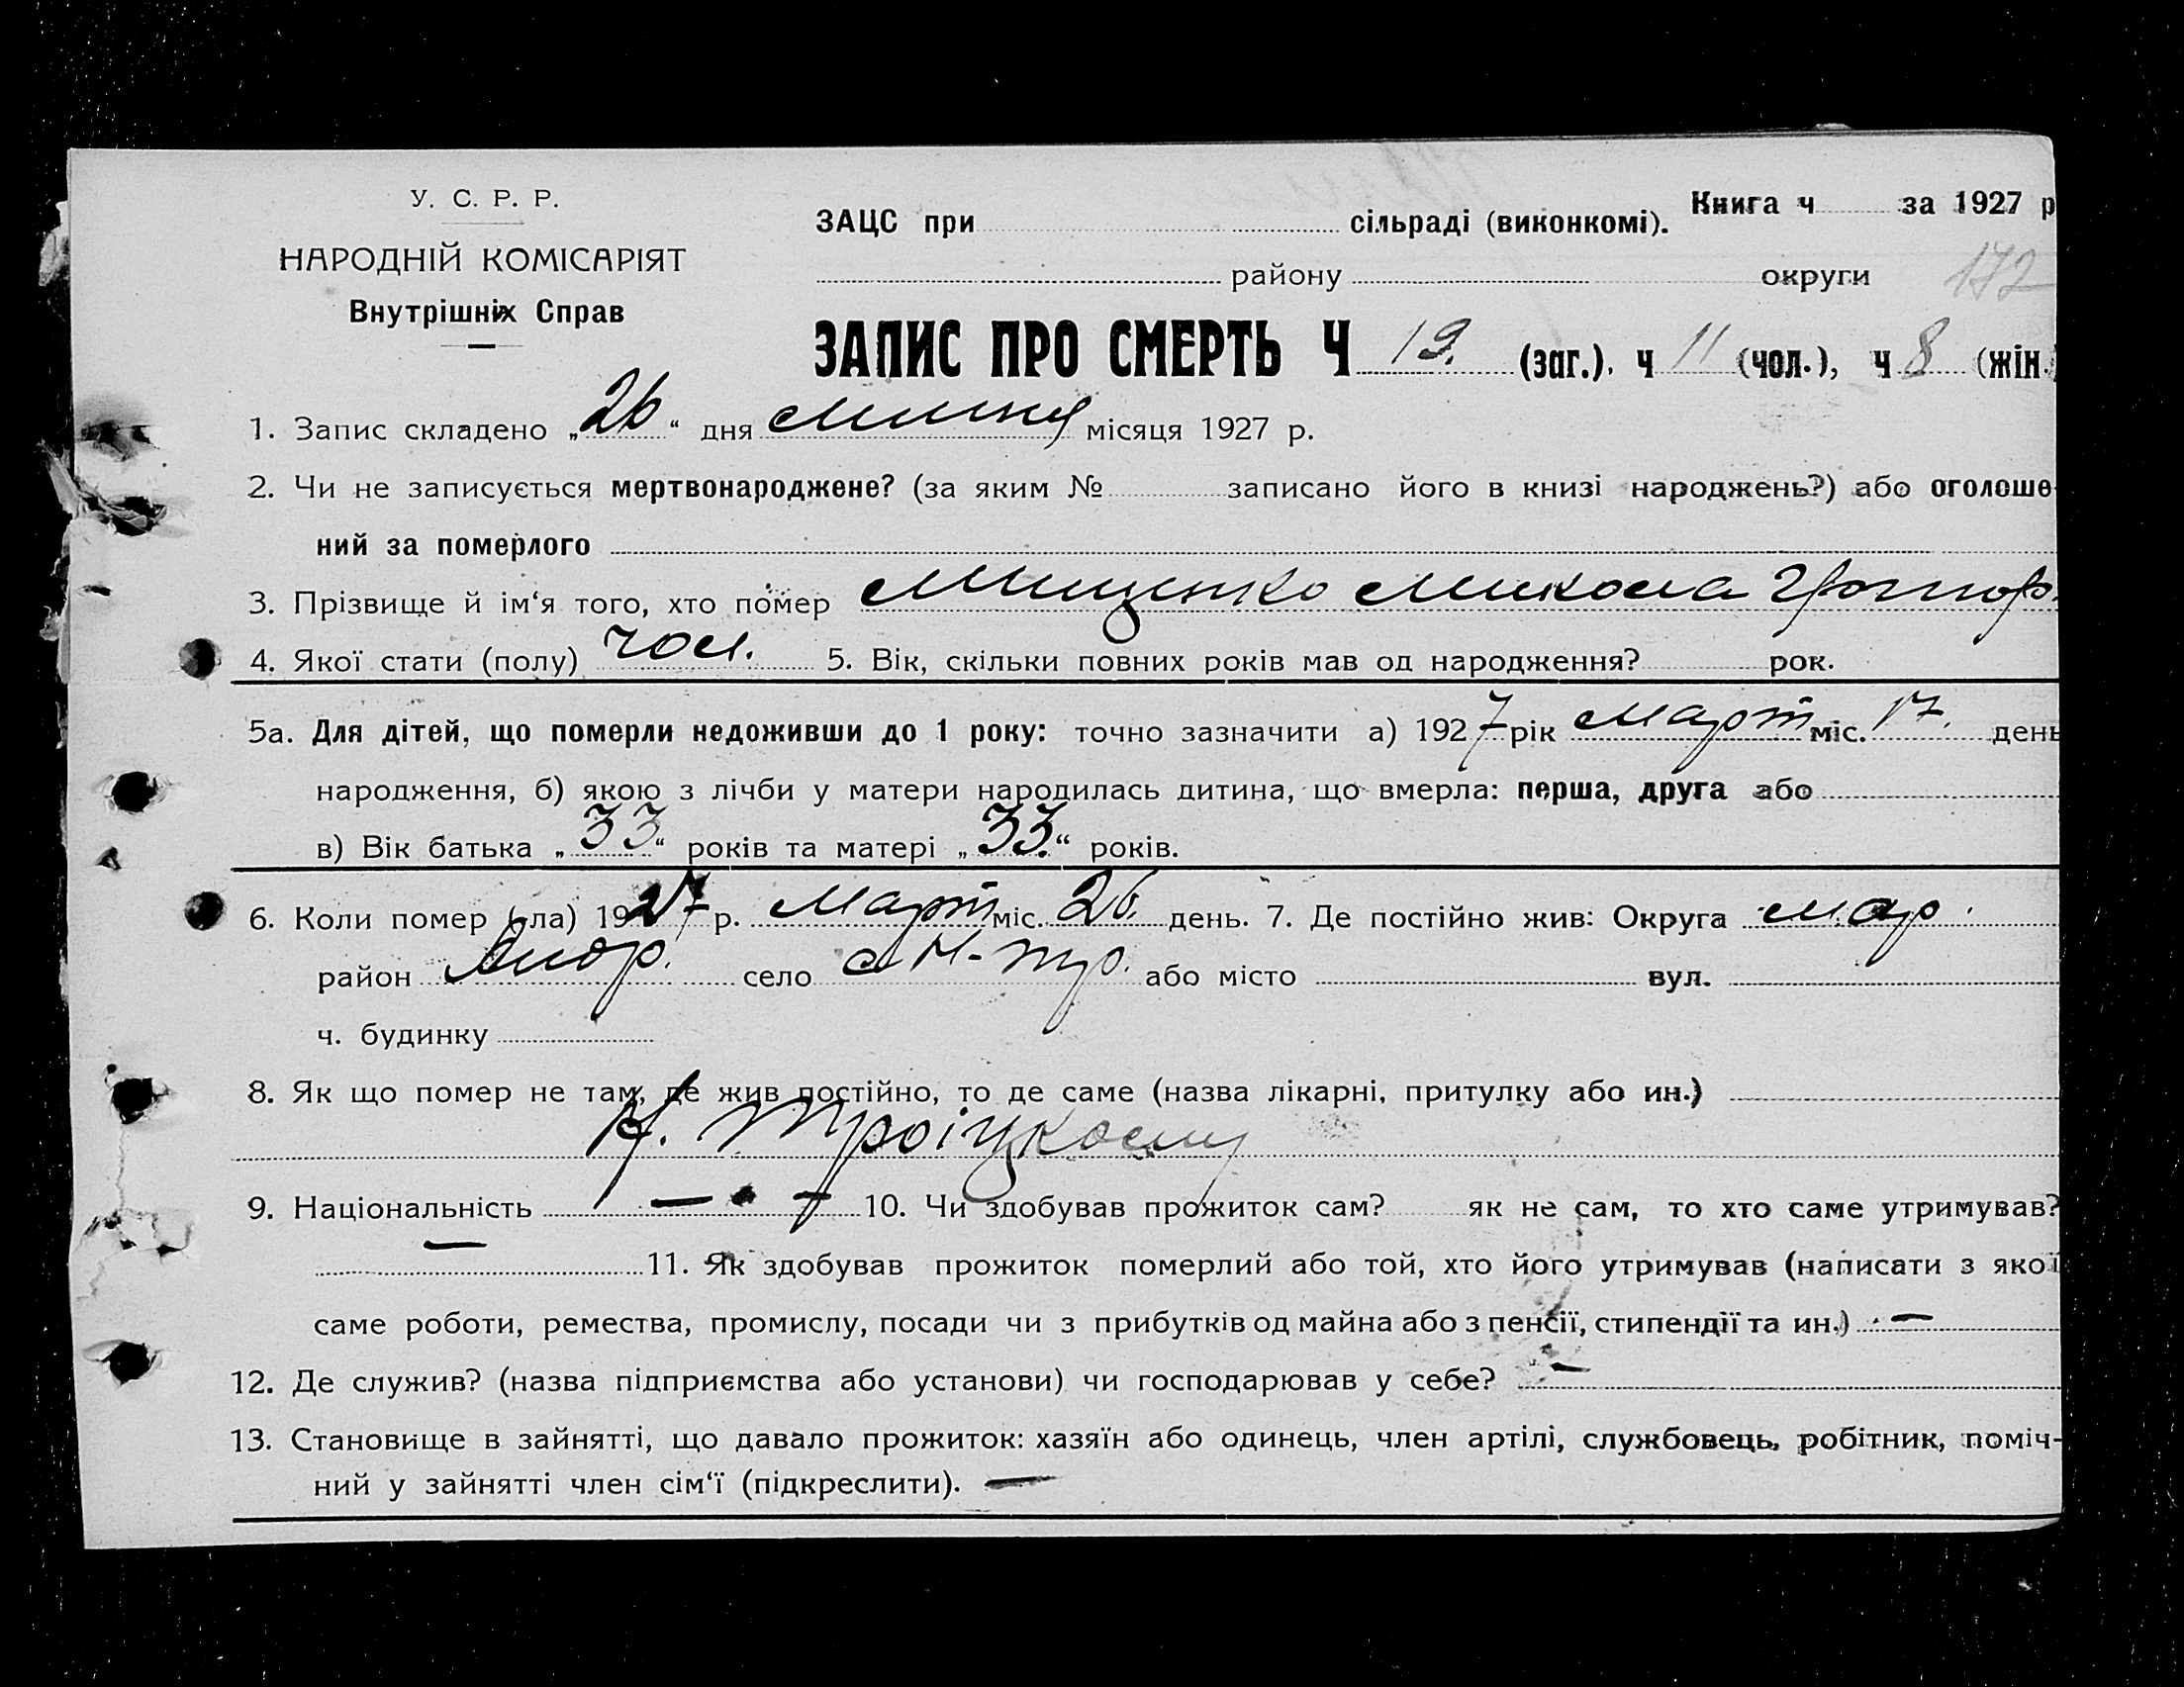 У. С. Р. Р.
НАРОДНІЙ КОМІСАРІЯТ
Внутрішніх Справ
Книга ч за 1927 р
ЗАЦС при сільраді (виконкомі).
району округи 172
ЗАПИС ПРО СМЕРТЬ Ч 19. (заг.). ч 11 (чол.), ч 8 (жін.)
1. Запис складено „26“ дня місяця 1927 р.
2. Чи не записується мертвонароджене? (за яким № записано його в книзі народжень?) або оголоше-
ний за померлого
3. Прізвище й ім‘я того, хто помер Мищенко Микола Григор.
4. Якої стати (полу) чол. 5. Вік, скільки повних років мав од народження? рок.
5а. Для дітей, що померли недоживши до 1 року: точно зазначити а) 1927 рік Март міс. 17. день
народження, б) якою з лічби у матери народилась дитина, що вмерла: перша, друга або
в) Вік батька „33“ років та матері „33.“ років.
6. Коли помер (ла) 1927 р. Март міс. 26. день. 7. Де постійно жив: Округа Мар.
район село Н-тр. або місто вул.
ч. будинку
8. Як що помер не там, де жив постійно, то де саме (назва лікарні, притулку або ин.)
Н. Троіцкому
9. Національність — 10. Чи здобував прожиток сам? як не сам, то хто саме утримував?
— 11. Як здобував прожиток померлий або той, хто його утримував (написати з якої
саме роботи, ремества, промислу, посади чи з прибутків од майна або з пенсії, стипендії та ин.) —
12. Де служив? (назва підприємства або установи) чи господарював у себе? —
13. Становище в зайнятті, що давало прожиток: хазяїн або одинець, член артілі, службовець, робітник, поміч-
ний у зайнятті член сім‘ї (підкреслити). —